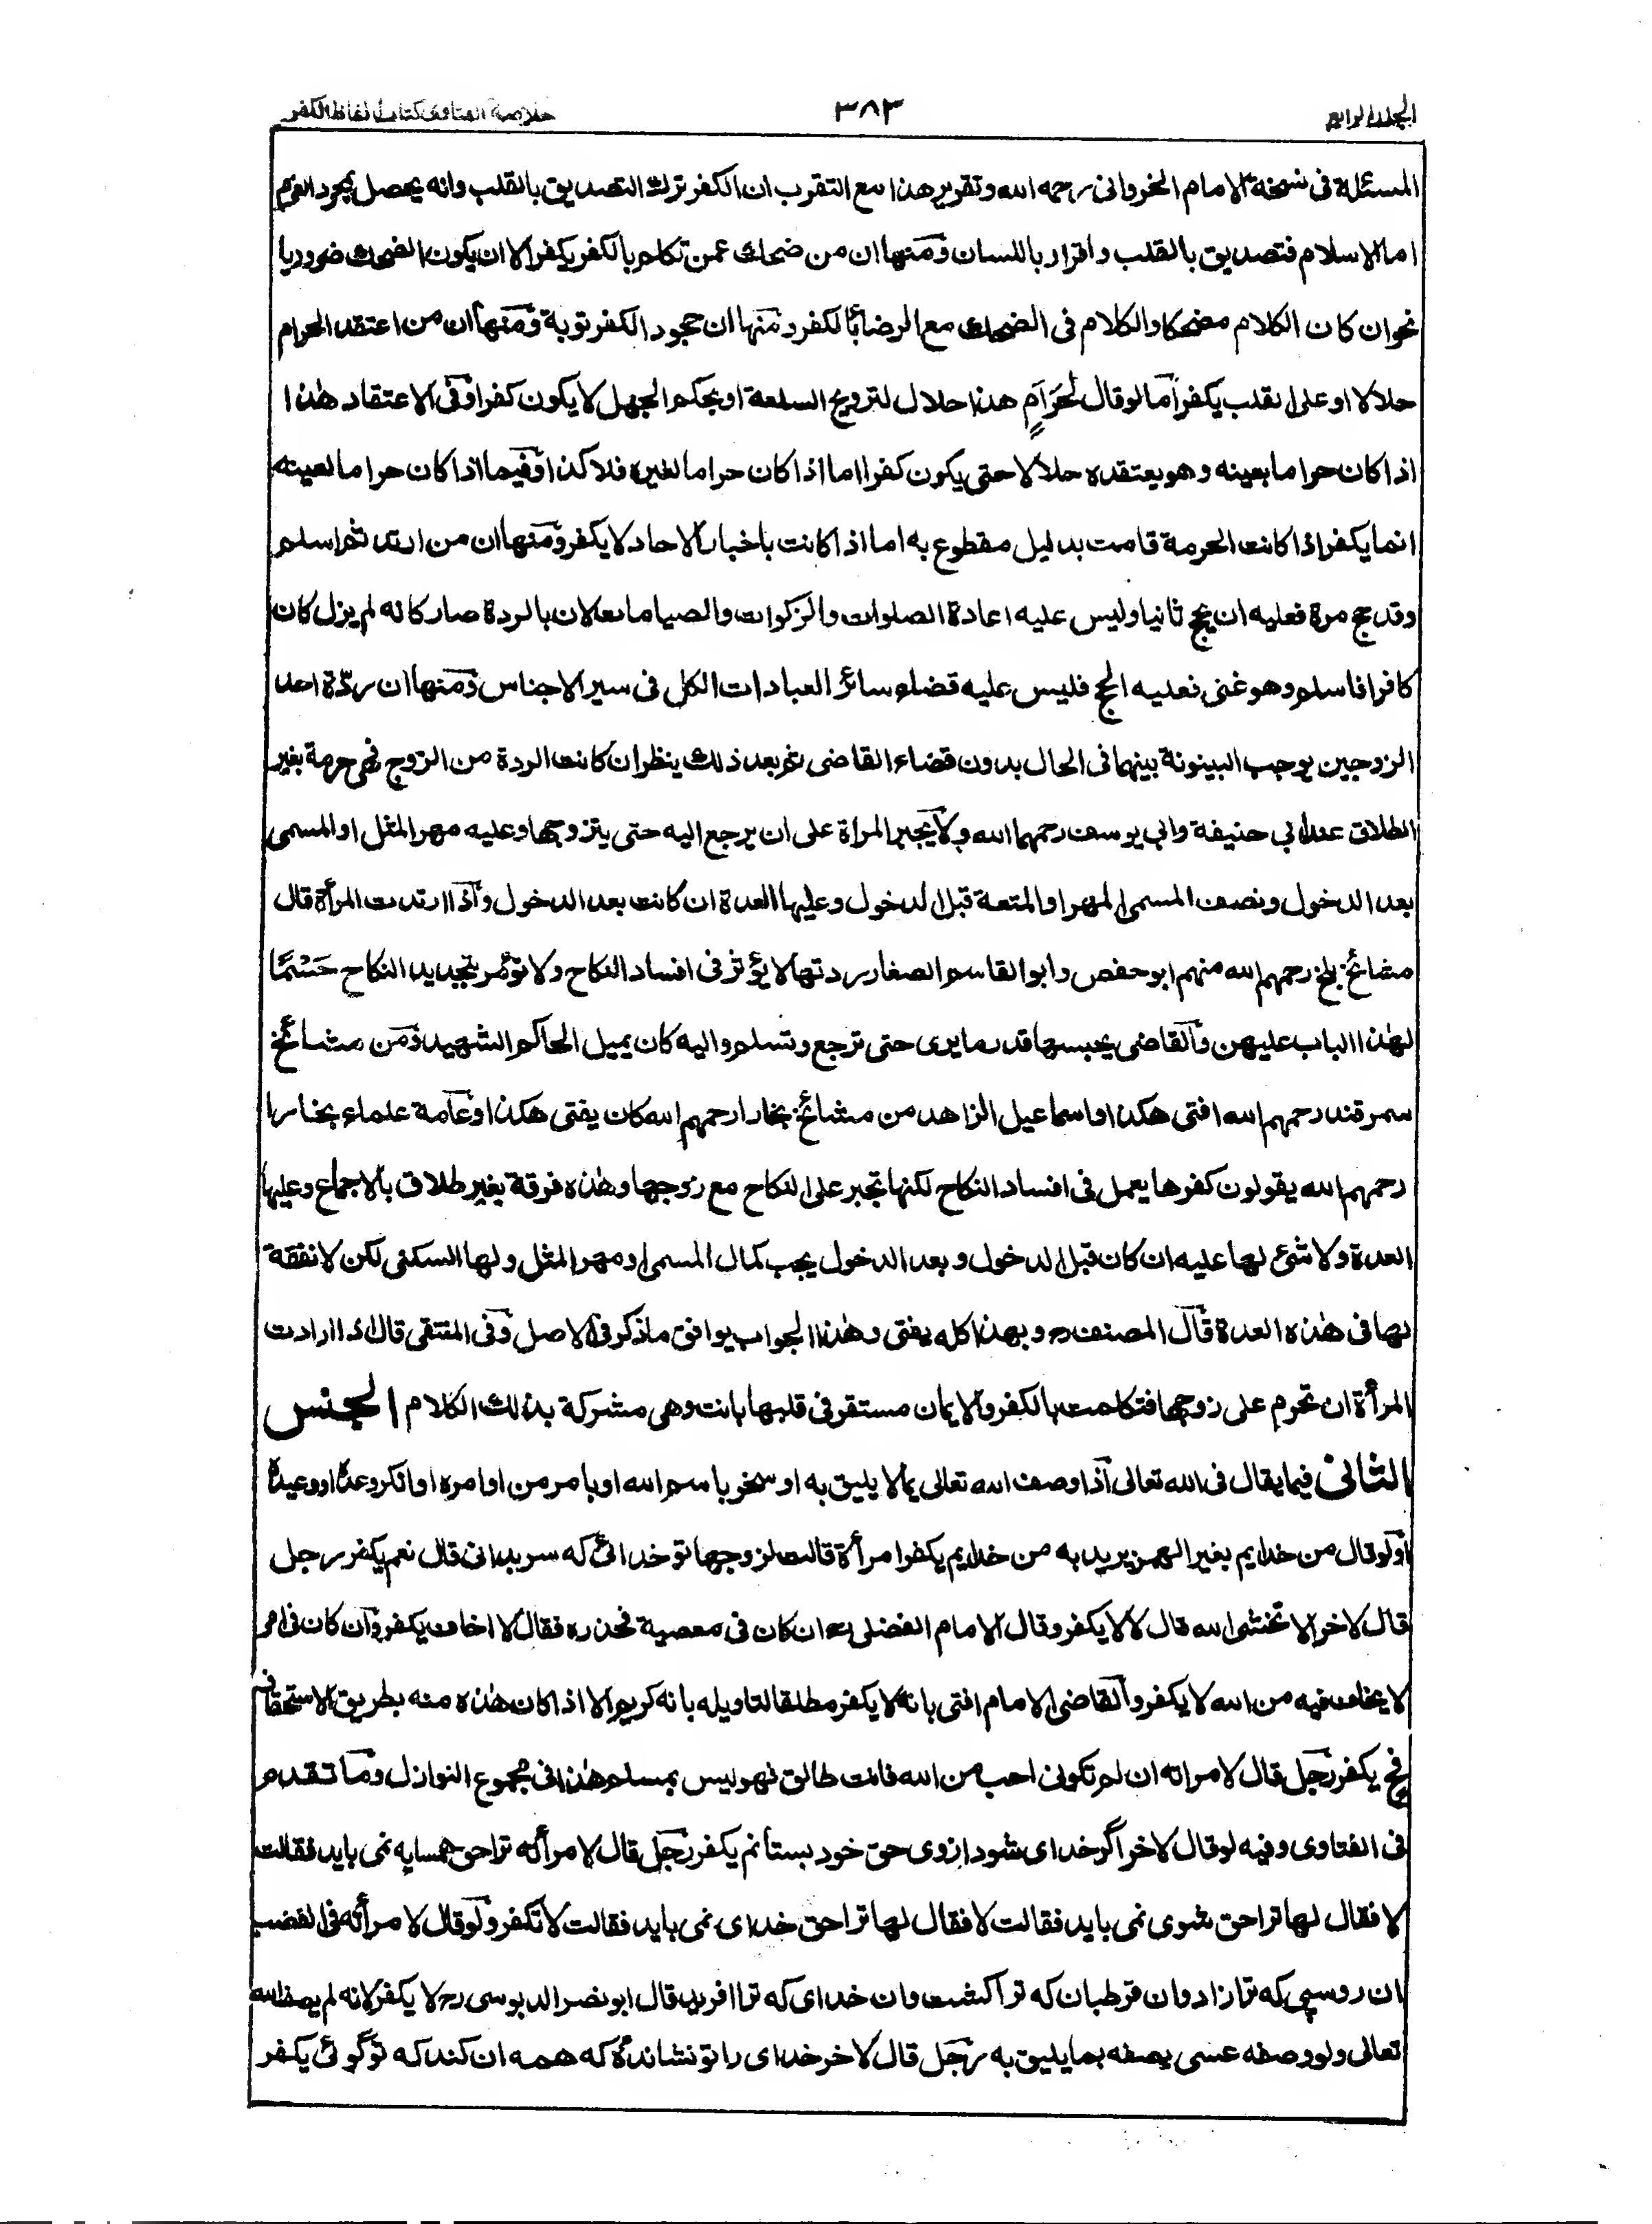 المجلد الرابع ٣٨٣ خلاصة الفتاوى كتاب الفاظ الكفر
المسئلة فى نسخة الامام الخروانى رحمه الله وتقرير هذا مع التقرب ان الكفر ترك التصديق بالقلب وانه يحصل بمجرد العزم
اما الاسلام فتصديق بالقلب واقرار باللسان ومنها ان من ضحك عمن تكلم بالكفر يكفر الا ان يكون الضحك ضروريا
نحو ان كان الكلام مضحكا والكلام فى الضحك مع الرضا بالكفر ومنها ان جحود الكفر توبة ومنها ان من اعتقد الحرام
حلالا او على القلب يكفر اما لو قال لحرام هذا حلال لترويج السلعة او بحكم الجهل لا يكون كفرا وفى الاعتقاد هذا
اذا كان حراما بعينه وهو يعتقده حلالا حتى يكون كفرا اما اذا كان حراما لغيره فلا كذا وفيما اذا كان حراما لعينه
انما يكفر اذا كانت الحرمة قامت بدليل مقطوع به اما اذا كانت باخبار الاحاد لا يكفر ومنها ان من ارتد ثم اسلم
وقد حج مرة فعليه ان يحج ثانيا وليس عليه اعادة الصلوات والزكوات والصيامات لان بالردة صار كانه لم يزل كان
كافرا فاسلم وهو غنى فعليه الحج فليس عليه قضاء سائر العبادات الكل فى سير الاجناس ومنها ان ردّة احد
الزوجين يوجب البينونة بينهما فى الحال بدون قضاء القاضى ثم بعد ذلك ينظر ان كانت الردة من الزوج فهى حرمة بغير
الطلاق عند ابى حنيفة وابى يوسف رحمهما الله ولا يجبر المراة على ان يرجع اليه حتى يتزوجها وعليه مهر المثل او المسمى
بعد الدخول ونصف المسمى المهر او المتعة قبل الدخول وعليها العدة ان كانت بعد الدخول واذا ارتدت المرأة قال
مشائخ بلخ رحمهم الله منهم ابو حفص وابو القاسم الصفار ردتها لا يؤثر فى افساد النكاح ولا تؤمر بتجديد النكاح حَسْمًا
لهذا الباب عليهن والقاضى يحبسها قدر ما يرى حتى ترجع وتسلم واليه كان يميل الحاكم الشهيد ومن مشائخ
سمرقند رحمهم الله افتى هكذا واسماعيل الزاهد من مشائخ بخارا رحمهم الله كان يفتى هكذا وعامة علماء بخارا
رحمهم الله يقولون كفرها يعمل فى افساد النكاح لكنها تجبر على النكاح مع زوجها وهذه فرقة بغير طلاق بالاجماع وعليها
العدة ولا شئ لها عليه ان كان قبل الدخول وبعد الدخول يجب كمال المسمى او مهر المثل ولها السكنى لكن لا نفقة
لها فى هذه العدة قال المصنف رح وبهذا كله يفتى وهذا الجواب يوافق ما ذكر فى الاصل وفى المنتقى قال اذا ارادت
المرأة ان تحرم على زوجها فتكلمت بالكفر والايمان مستقر فى قلبها بانت وهى مشركة بذلك الكلام الجنس
الثانى فيما يقال فى الله تعالى اذا وصف الله تعالى بما لا يليق به او سخر باسم الله او بامر من اوامره او انكر وعده او وعيده
او لو قال من خدايم بغير الهمز يريد به من خدايم يكفر امرأة قالت لزوجها تو خدائى كه سر بدانى قال نعم يكفر رجل
قال لاخر الا تخشى الله قال لا لا يكفر وقال الامام الفضلى رح ان كان فى معصية فحذره فقال لا اخاف يكفر وان كان فى امر
لا يخاف فيه من الله لا يكفر والقاضى الامام افتى بانه لا يكفر مطلقا لتاويله بانه كريم الا اذا كان هذه منه بطريق الاستخفاف
فح يكفر رجل قال لامراته ان لم تكونى احب من الله فانت طالق فهو ليس بمسلم هذا فى مجموع النوازل وما تقدم
فى الفتاوى وفيه لو قال لاخر اگر خداى شود ازوى حق خود بستانم يكفر رجل قال لامرأته ترا حق همسايه نمى بايد فقالت
لا فقال لها ترا حق شوى نمى بايد فقالت لا فقال لها ترا حق خداى نمى بايد فقالت لا تكفر ولو قال لامرأته فى الغضب
ان روسپى كه ترا زاد وان قرطبان كه ترا كشت وان خداى كه ترا افريد قال ابو نصر الدبوسى رح لا يكفر لانه لم يصف الله
تعالى ولو وصفه عسى يصفه بما يليق به رجل قال لاخر خداى را تو نشاندۀ كه همه ان كند كه تو گوئى يكفر